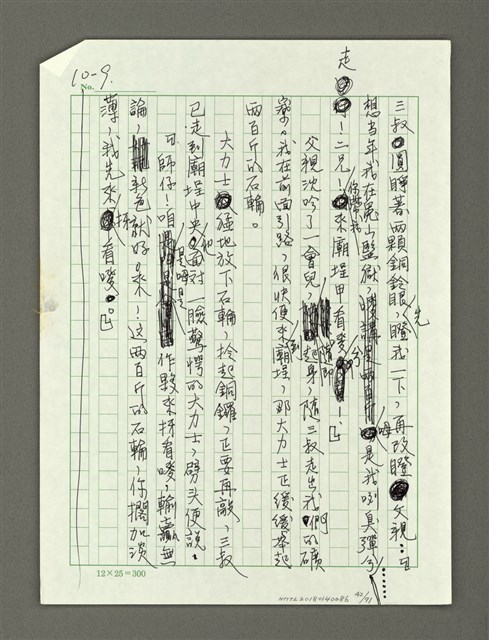 10-9.
No.
三叔圓睜著兩顆銅鈴眼,先瞪我一下,再改瞪父親…「
想當年我在龜山監獄,你嘸是我咧臭彈兮……
走!二兄!來廟埕甲看麥兮!」
父親沈吟了一會兒,隨即起身,隨三叔走出我們的礦
寮。我在前面引路,很快便來到廟埕,那大力士正緩緩舉起
兩百斤的石輪。
大力士猛地放下石輪,拎起銅鑼,正要再敲,三叔
已走到廟埕中央,面對一臉驚愕的大力士,劈頭便說:
「師仔!咱是毋是作夥來拚看嘜,輸贏無
論,歡就好。來!這兩百斤的石輪,你擱加淡
薄,我先來拚看嘜。」
12×25=300
NMTL20180140086
42/71